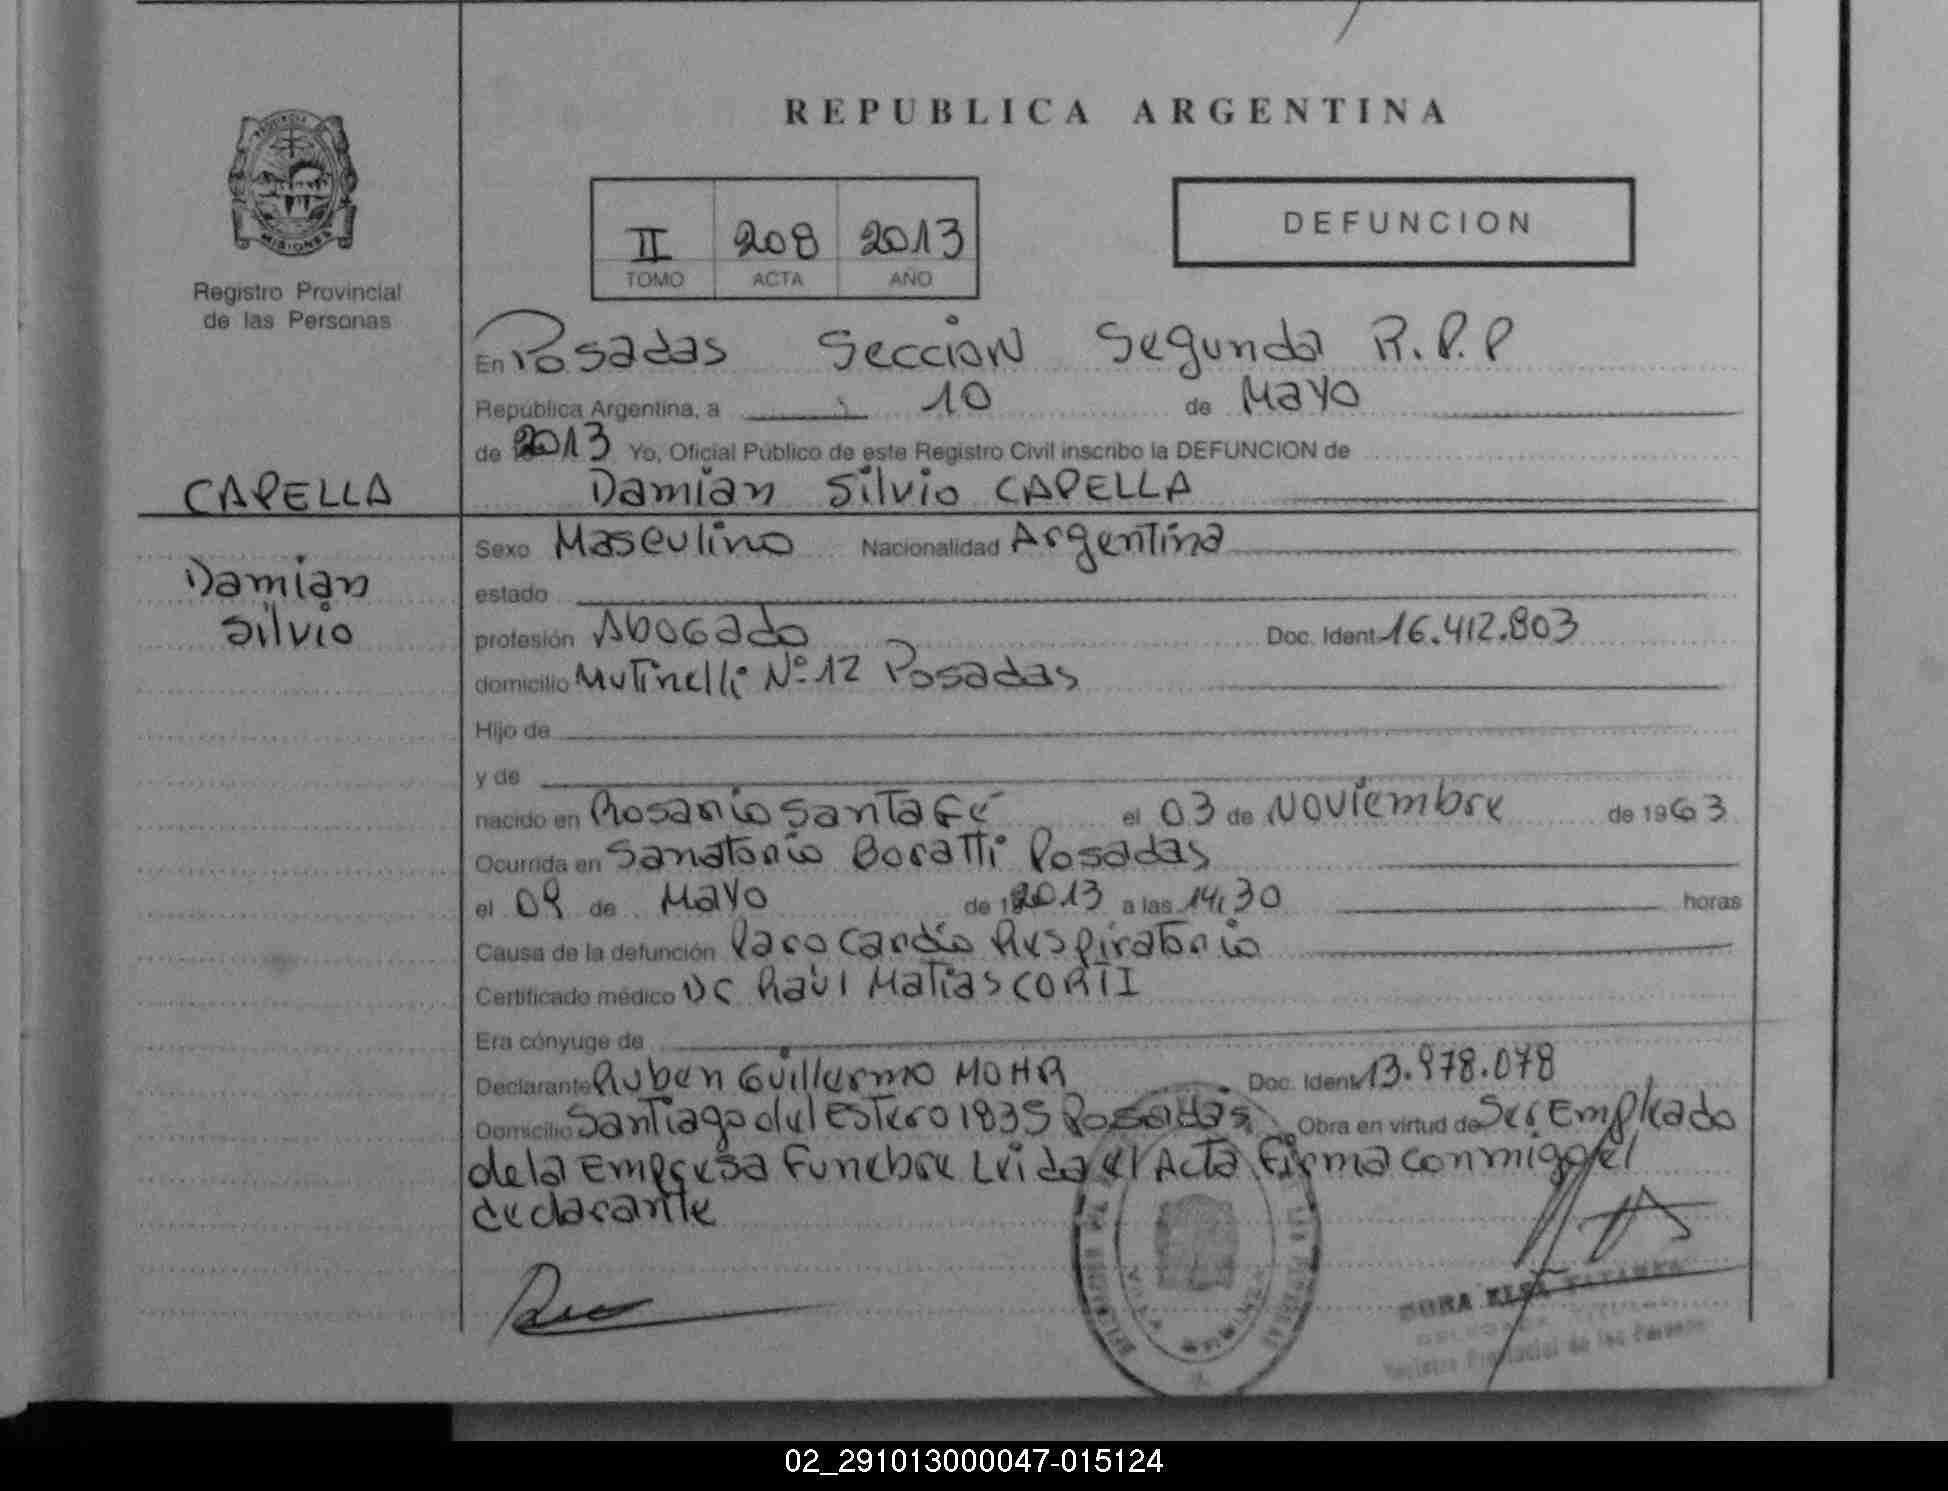 REPUBLICA ARGENTINA
PROVINCIA
MISIONES
Registro Provincial
de las Personas
II 208 2013
TOMO ACTA AÑO
DEFUNCION
En Posadas Sección Segunda R.P.P
República Argentina, a 10 de Mayo
de 2013 Yo, Oficial Público de este Registro Civil inscribo la DEFUNCION de
CAPELLA
Damián Silvio CAPELLA
Damián
Silvio
Sexo Masculino Nacionalidad Argentina
estado
profesión Abogado Doc. Ident. 16.412.803
domicilio Mutinelli Nº 12 Posadas
Hijo de
y de
nacido en Rosario Santa Fé el 03 de Noviembre de 1963
Ocurrida en Sanatorio Boratti Posadas
el 09 de Mayo de 2013 a las 14,30 horas
Causa de la defunción Paro Cardio Respiratorio
Certificado médico Dr Raúl Matias CORTI
Era cónyuge de
Declarante Ruben Guillermo MOHR Doc. Ident. 13.978.078
Domicilio Santiago del Estero 1835 Posadas Obra en virtud de Ser Empleado
de la Empresa Funebre Leida el Acta firma conmigo el
declarante
ELSA
Registro Provincial de las Personas
02_291013000047-015124